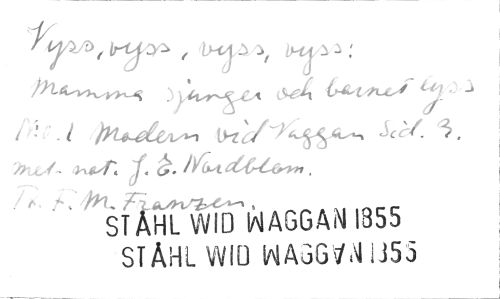 Vyss, vyss, vyss, vyss:
Mamma sjunger och barnet lyss
No. 1 Modern vid Vaggan Sid. 3.
mel. not. J. E. Nordblom.
F. M. Franzen.
STÅHL WID WAGGAN 1855
STÅHL WID WAGGAN 1855